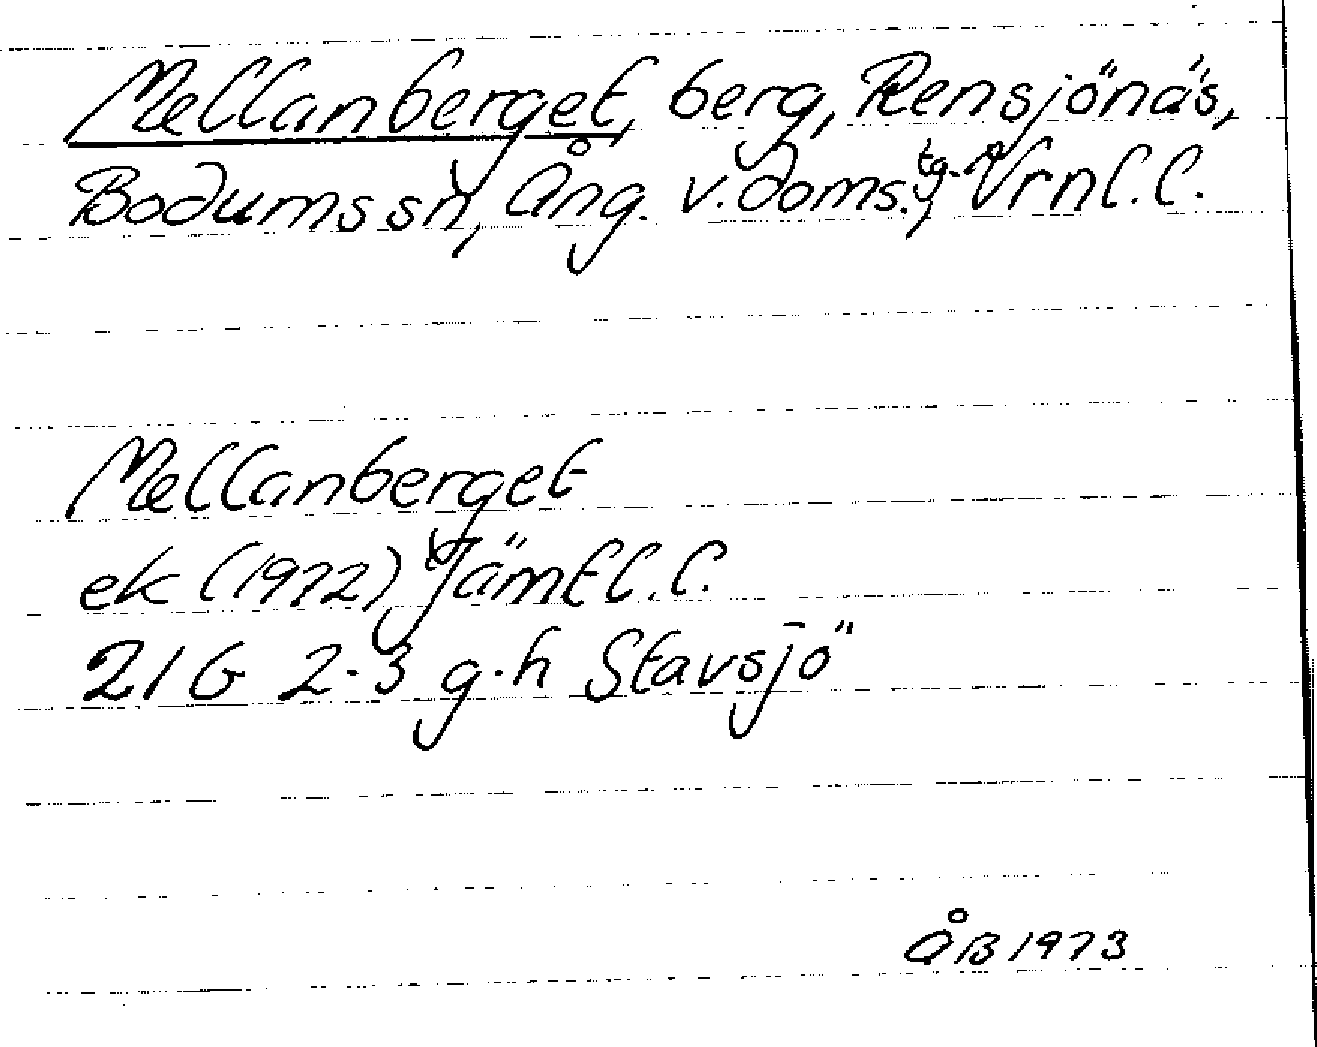 Mellanberget, berg, Rensjönäs,
Bodums sn, Ång. v. doms. tg, Vrnl. l.
Mellanberget
ek (1972) Jämtl. l.
21G 2-3 g-h Stavsjö
ÅB 1973